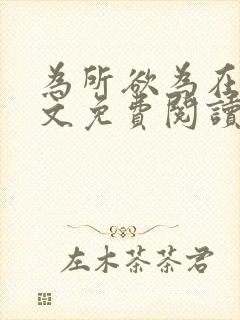 為所欲為在
文免費閱讀
左木茶茶君